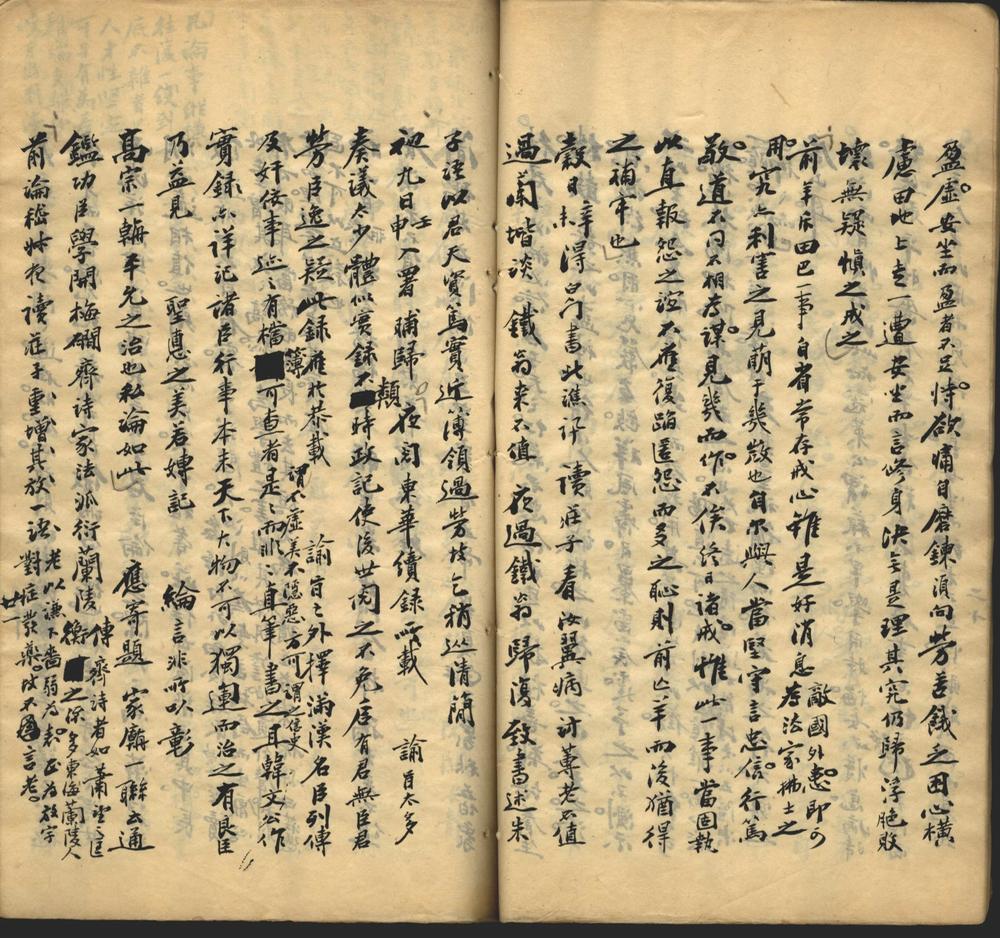 盈虛安坐而盈者不足恃欲痛自磨鍊須向勞苦餓乏困心橫
慮田地上走一遭安坐而言修身決無是理其究仍歸浮脆敗
壞無疑慎之戒之
前羊斥田巴一事自省常存戒心雖是好消息敵國外患即可為法家拂士之
用究亦利害之見萌于幾微也自尔與人當堅守言忠信行篤
敬道不同不相為謀見幾而作不俟終日諸戒惟此一事當固執
以直報怨之誼不應復蹈匿怨而多之恥則前亡羊而後猶得
之補牢也
穀日辛未得白門書此譙評 讀莊子 看汝翼病 訪蓴老不值
過蘭堦談 鐵翁來不值 夜過鐵翁歸復致書述朱
子語以君天資篤實近簿領過勞故乞稍近清簡
初九日壬申入署晡歸 夜閱東華續錄所載 諭旨太多
奏議太少體似實錄不類時政記使後世閱之不免启有君無臣君
勞臣逸之疑此錄應於恭載諭旨之外擇滿漢名臣列傳謂不虛美不隱惡方可謂之信史
及奸佞事迹之有檔簿可查者是是而非非直筆書之且韓文公作
實錄亦詳記諸臣行事本末天下大物不可以獨運而治之有良臣
乃益見 聖悳之美若專記 綸言非所以彰
高宗一朝平允之治也私論如此 應寄題 家廟一聯云通
鑑功臣學開梅磵齊詩家法派衍蘭陵傳齊詩者如蕭望之匡衡之倫多東海蘭陵人
前論嵇叔夜讀莊子重增其放一語老以謙下嗇弱為表正為放字對症發藥故不言老
廿一